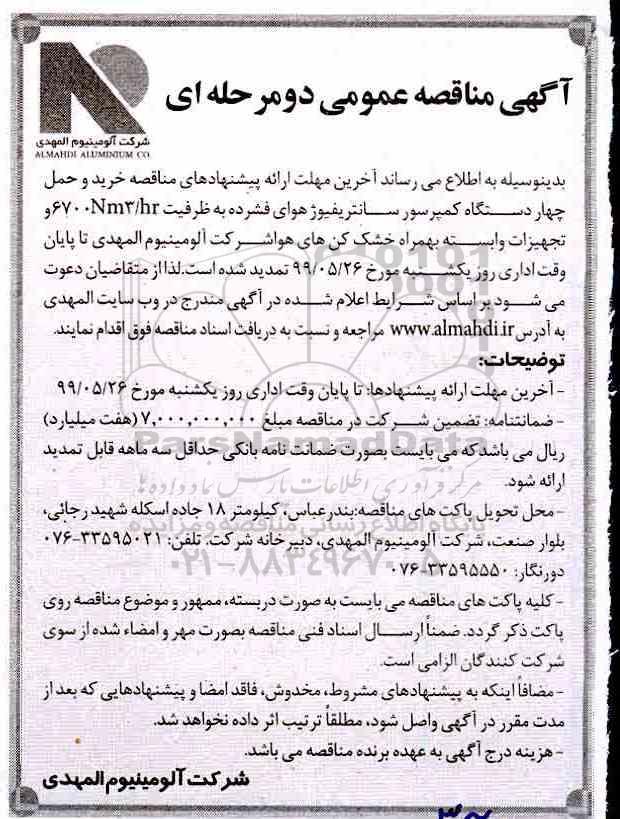 آگهی مناقصه عمومی دومرحله ای
شرکت آلومینیوم المهدی
ALMAHDI ALUMINIUM CO.
بدینوسیله به اطلاع می رساند آخرین مهلت ارائه پیشنهادهای مناقصه خرید و حمل
چهار دستگاه کمپرسور سانتریفیوژ هوای فشرده به ظرفیت ۶۷۰۰Nm۳/hr و
تجهیزات وابسته بهمراه خشک کن های هوا شرکت آلومینیوم المهدی تا پایان
وقت اداری روز یکشنبه مورخ ۹۹/۰۵/۲۶ تمدید شده است.لذا از متقاضیان دعوت
می شود بر اساس شرایط اعلام شده در آگهی مندرج در وب سایت المهدی
به آدرس www.almahdi.ir مراجعه و نسبت به دریافت اسناد مناقصه فوق اقدام نمایند.
توضیحات:
- آخرین مهلت ارائه پیشنهادها: تا پایان وقت اداری روز یکشنبه مورخ ۹۹/۰۵/۲۶
- ضمانتنامه: تضمین شرکت در مناقصه مبلغ ۷,۰۰۰,۰۰۰,۰۰۰ (هفت میلیارد)
ریال می باشد که می بایست بصورت ضمانت نامه بانکی حداقل سه ماهه قابل تمدید
ارائه شود.
- محل تحویل پاکت های مناقصه:بندرعباس، کیلومتر ۱۸ جاده اسکله شهید رجائی،
بلوار صنعت، شرکت آلومینیوم المهدی، دبیرخانه شرکت. تلفن: ۳۳۵۹۵۰۲۱-۰۷۶
دورنگار: ۳۳۵۹۵۵۵۰-۰۷۶
- کلیه پاکت های مناقصه می بایست به صورت دربسته، ممهور و موضوع مناقصه روی
پاکت ذکر گردد. ضمناً ارسال اسناد فنی مناقصه بصورت مهر و امضاء شده از سوی
شرکت کنندگان الزامی است.
- مضافاً اینکه به پیشنهادهای مشروط، مخدوش، فاقد امضا و پیشنهادهایی که بعد از
مدت مقرر در آگهی واصل شود، مطلقاً ترتیب اثر داده نخواهد شد.
- هزینه درج آگهی به عهده برنده مناقصه می باشد.
شرکت آلومینیوم المهدی
ParsNamadData
مرکز فرآوری اطلاعات پارس نماد داده ها
پایگاه اطلاع رسانی مناقصه و مزایده
۰۲۱-۸۸۳۴۹۶۷۰-۵